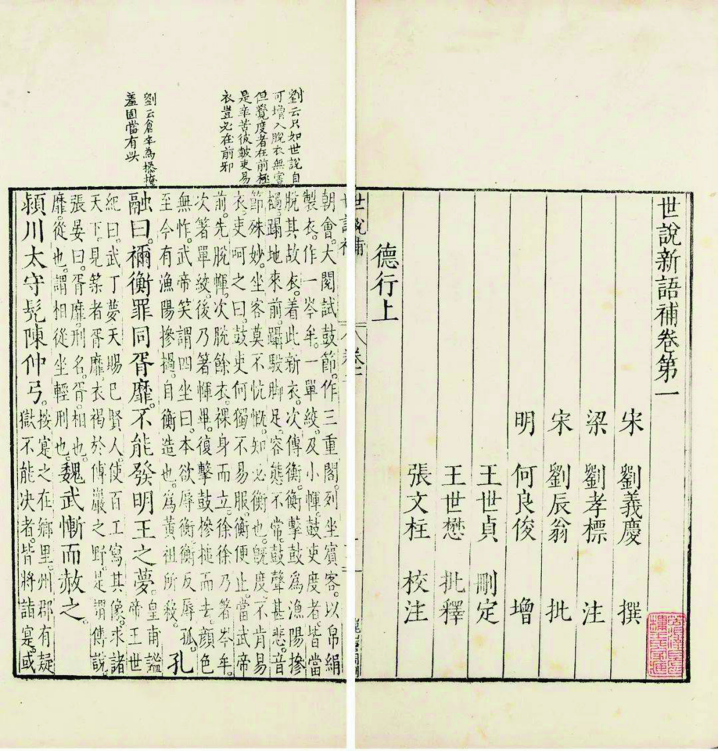 世說新語補卷第一
宋 劉義慶 撰
梁 劉孝標 注
宋 劉辰翁 批
明 何良俊 增
王世貞 刪定
王世懋 批釋
張文柱 校注
德行上
世說補 卷二
劉云只如世說自
可增入脫衣無害
但覺度者在前極
是辛苦後數更易
衣豈必在前邪
劉云倉卒為
蓋固當有此
朝會。大閱試鼓節。作三重閣。列坐賓客。以帛絹
製衣。作一岑牟。一單絞。及小㡓。鼓吏度者。皆當
脫其故衣。着此新衣。次傳衡。衡擊鼓為漁陽摻
檛。蹋地來前。躡馺脚足。容態不常。鼓聲甚悲。音
節殊妙。坐客莫不忼慨。知必衡也。旣度。不肯易
衣。吏呵之曰。鼓吏何獨不易服。衡便止。當武帝
前。先脫㡓。次脫餘衣。裸身而立。徐徐乃著岑牟。
次著單絞。後乃著㡓。畢。復擊鼓摻檛而去。顏色
無怍。武帝笑謂四坐曰。本欲辱衡。衡反辱孤。
至今有漁陽摻檛。自衡造也。為黃祖所殺。孔
融曰。禰衡罪同胥靡。不能發明王之夢。皇甫謐帝王世
紀曰。武丁夢天賜己賢人。使百工寫其像。求諸
天下。見築者胥靡。衣褐於傅巖之野。是謂傅說。
張晏曰。胥靡。刑名。胥。相也。靡。從也。謂相從坐輕刑也。魏武慚而赦之。
潁川太守髡陳仲弓。按寔之在鄉里。州郡有疑獄不能決者。皆將詣寔。或